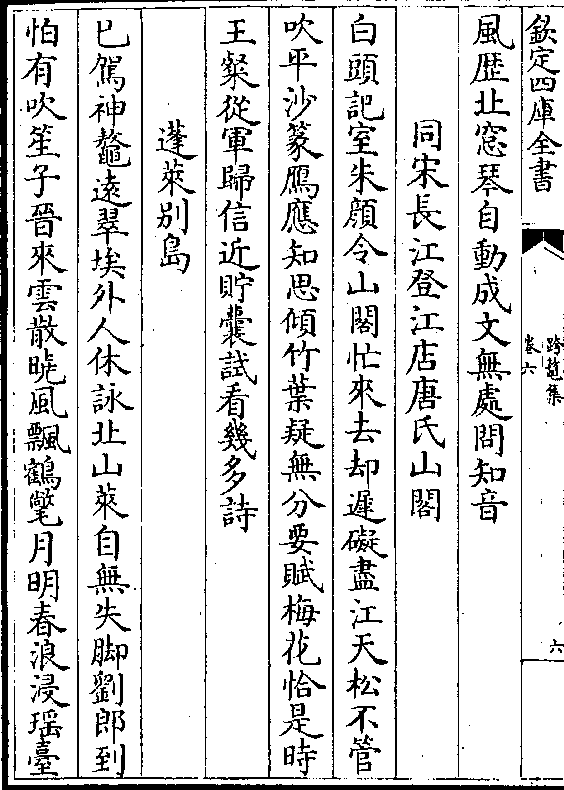 欽定四庫全書
跨鼇集
卷六
六
風歴北窓琴自動成文無處問知音
同宋長江登江店唐氏山閣
白頭記室朱顔令山閣忙來去却遲礙盡江天松不管
吹平沙篆鴈應知思傾竹葉疑無分要賦梅花恰是時
王粲從軍歸信近貯囊試看幾多詩
蓬萊別島
已駕神鼇遠翠埃外人休詠北山萊自無失脚劉郎到
怕有吹笙子晉來雲散曉風飄鶴氅月明春浪浸瑶臺